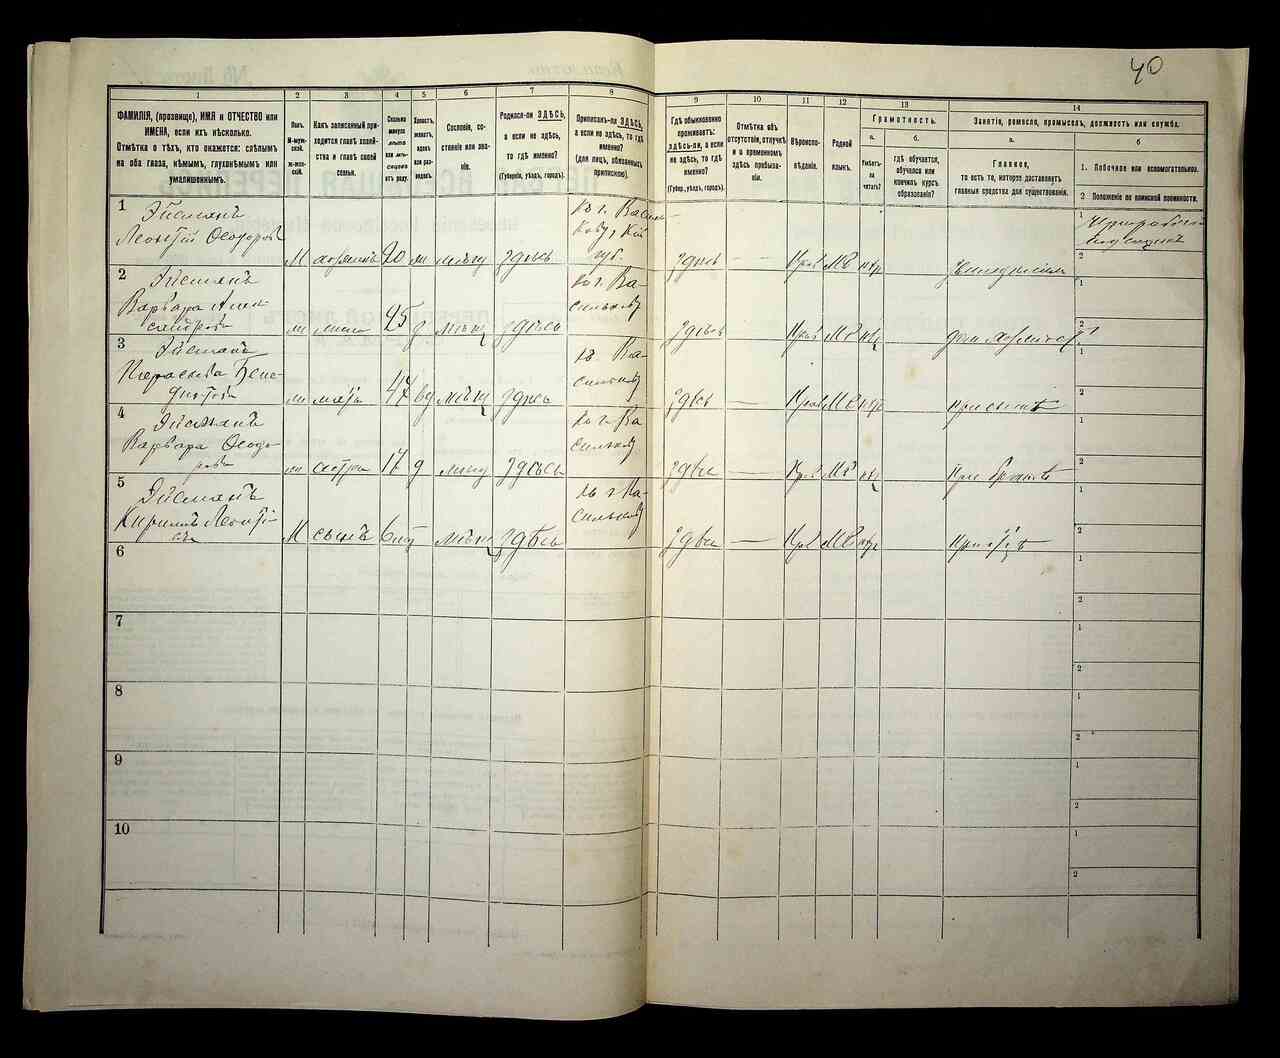 40
1
2
3
4
5
6
7
8
9
10
11
12
13
14
ФАМИЛІЯ, (прозвище), ИМЯ и ОТЧЕСТВО или
ИМЕНА, если ихъ нѣсколько.
Отмѣтка о тѣхъ, кто окажется: слѣпымъ
на оба глаза, нѣмымъ, глухонѣмымъ или
умалишеннымъ.
Полъ.
М-муж-
ской.
ж-жен-
скій.
Какъ записанный при-
ходится главѣ хозяй-
ства и главѣ своей
семьи.
Сколько
минуло
лѣтъ
или мѣ-
сяцевъ
отъ роду.
Холостъ,
женатъ,
вдовъ
или раз-
веденъ.
Сословіе, со-
стояніе или зва-
ніе.
Родился-ли ЗДѢСЬ,
а если не здѣсь,
то гдѣ именно?
(Губернія, уѣздъ, городъ).
Приписанъ-ли ЗДѢСЬ,
а если не здѣсь, то гдѣ
именно?
(для лицъ, обязанныхъ
припискою).
Гдѣ обыкновенно
проживаетъ:
здѣсь-ли, а если
не здѣсь, то гдѣ
именно?
(Губер., уѣздъ, городъ).
Отмѣтка объ
отсутствіи, отлучкѣ
и о временномъ
здѣсь пребыва-
ніи.
Вѣроиспо-
вѣданіе.
Родной
языкъ.
Грамотность.
а.
Умѣетъ-
ли
читать?
б.
гдѣ обучается,
обучался или
кончилъ курсъ
образованія?
Занятіе, ремесло, промыселъ, должность или служба.
а.
Главное,
то есть то, которое доставляетъ
главныя средства для существованія.
б
1. Побочное или вспомогательное.
2 Положеніе по воинской повинности.
1 Эйсманъ
Леонтій Ѳеодоров
М хозяинъ м мѣщ здѣсь
къ г. Василь-
кову, Кіев
губ.
здѣсь — — нѣтъ
2 Эйсманъ
Варвара Алек-
сандрова
жена 25 з мѣщ здѣсь
къ г. Ва-
силькову
здѣсь нѣтъ
3 Эйсманъ
мать 47 вд мѣщ здѣсь
къ г. Ва-
силькову
здѣсь — нѣтъ при сынѣ
4 Эйсманъ
Варвара Ѳеодо-
рова
сестра 17 д мѣщ здѣсь
къ г. Ва-
силькову
здѣсь — нѣтъ при братѣ
5 Эйсманъ
Кириллъ Леонтіе-
въ
М сынъ мѣщ здѣсь
къ г. Ва-
силькову
здѣсь — нѣтъ при отцѣ
6
7
8
9
10